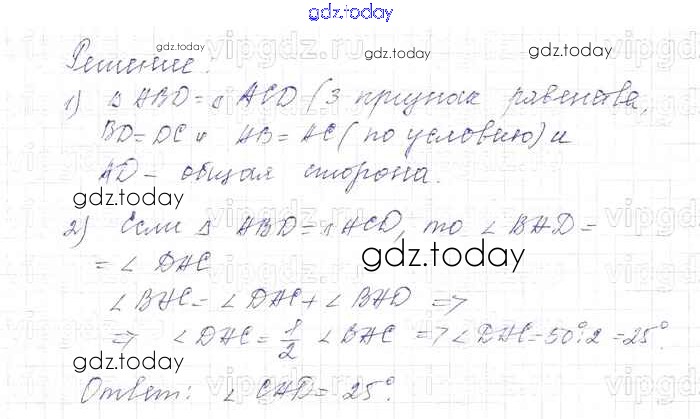 gdz.today
Решение.
1) Δ ABD = Δ ACD (3 признак равенства,
BD = DC и AB = AC (по условию) и
AD – общая сторона.
gdz.today
2) Если Δ ABD = Δ ACD, то ∠ BAD =
= ∠ DAC
gdz.today
∠ BAC = ∠ DAC + ∠ BAD =>
=> ∠ DAC = 1/2 ∠ BAC => ∠ DAC = 50° : 2 = 25°.
gdz.today
Ответ: ∠ CAD = 25°.